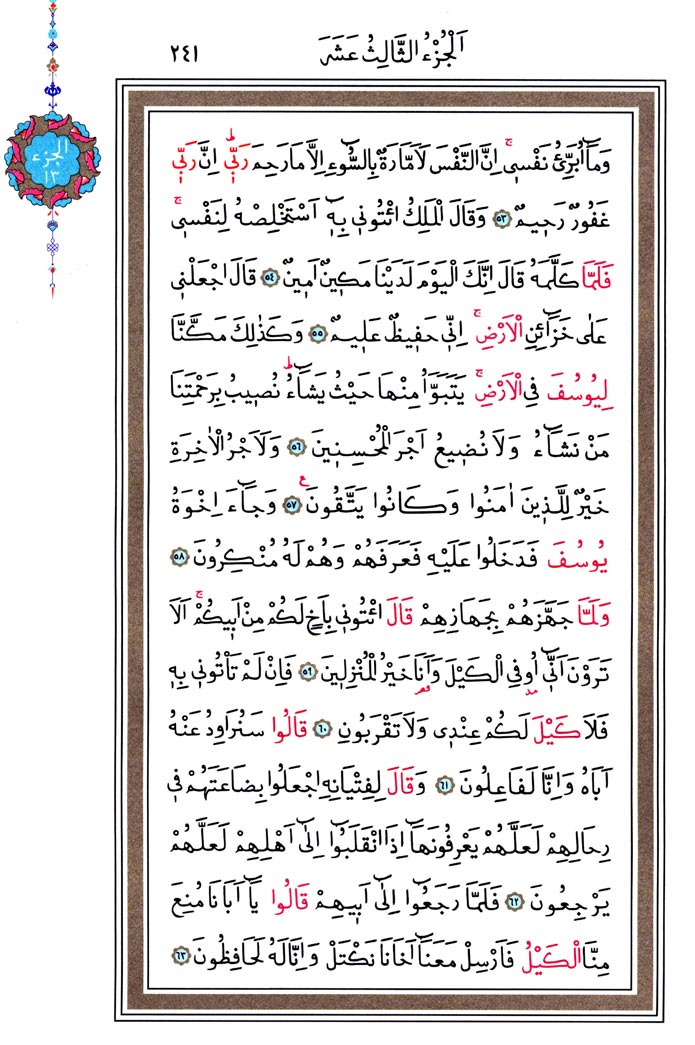 اَلْجُزْءُ الثَّالِثُ عَشَرَ
٢٤١
الجزء
١٣
وَمَٓا اُبَرِّئُ نَفْسٖيۚ اِنَّ النَّفْسَ لَاَمَّارَةٌ بِالسُّٓوءِ اِلَّا مَا رَحِمَ رَبّٖيؕ اِنَّ رَبّٖي
غَفُورٌ رَحٖيمٌ ﴿٥٣﴾ وَقَالَ الْمَلِكُ ائْتُونٖي بِهٖٓ اَسْتَخْلِصْهُ لِنَفْسٖيۚ
فَلَمَّا كَلَّمَهُ قَالَ اِنَّكَ الْيَوْمَ لَدَيْنَا مَكٖينٌ اَمٖينٌ ﴿٥٤﴾ قَالَ اجْعَلْنٖي
عَلٰى خَزَٓائِنِ الْاَرْضِۚ اِنّٖي حَفٖيظٌ عَلٖيمٌ ﴿٥٥﴾ وَكَذٰلِكَ مَكَّنَّا
لِيُوسُفَ فِي الْاَرْضِۚ يَتَبَوَّاُ مِنْهَا حَيْثُ يَشَٓاءُؕ نُصٖيبُ بِرَحْمَتِنَا
مَنْ نَشَٓاءُ وَلَا نُضٖيعُ اَجْرَ الْمُحْسِنٖينَ ﴿٥٦﴾ وَلَاَجْرُ الْاٰخِرَةِ
خَيْرٌ لِلَّذٖينَ اٰمَنُوا وَكَانُوا يَتَّقُونَ ﴿٥٧﴾ ع وَجَٓاءَ اِخْوَةُ
يُوسُفَ فَدَخَلُوا عَلَيْهِ فَعَرَفَهُمْ وَهُمْ لَهُ مُنْكِرُونَ ﴿٥٨﴾
وَلَمَّا جَهَّزَهُمْ بِجَهَازِهِمْ قَالَ ائْتُونٖي بِاَخٍ لَكُمْ مِنْ اَبٖيكُمْۚ اَلَا
تَرَوْنَ اَنّٖٓي اُو۫فِي الْكَيْلَ وَاَنَا۬ خَيْرُ الْمُنْزِلٖينَ ﴿٥٩﴾ فَاِنْ لَمْ تَاْتُونٖي بِهٖ
فَلَا كَيْلَ لَكُمْ عِنْدٖي وَلَا تَقْرَبُونِ ﴿٦٠﴾ قَالُوا سَنُرَاوِدُ عَنْهُ
اَبَاهُ وَاِنَّا لَفَاعِلُونَ ﴿٦١﴾ وَقَالَ لِفِتْيَانِهِ اجْعَلُوا بِضَاعَتَهُمْ فٖي
رِحَالِهِمْ لَعَلَّهُمْ يَعْرِفُونَهَٓا اِذَا انْقَلَبُٓوا اِلٰٓى اَهْلِهِمْ لَعَلَّهُمْ
يَرْجِعُونَ ﴿٦٢﴾ فَلَمَّا رَجَعُٓوا اِلٰٓى اَبٖيهِمْ قَالُوا يَٓا اَبَانَا مُنِعَ
مِنَّا الْكَيْلُ فَاَرْسِلْ مَعَنَٓا اَخَانَا نَكْتَلْ وَاِنَّا لَهُ لَحَافِظُونَ ﴿٦٣﴾